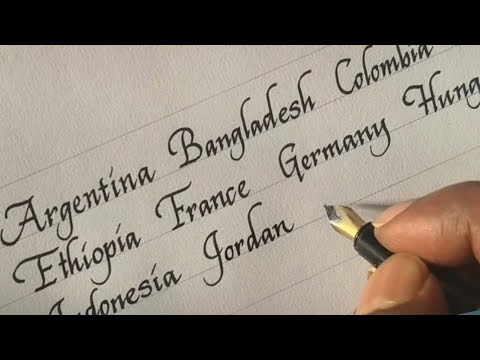 Argentina Bangladesh Colombia
Ethiopia France Germany Hung
Indonesia Jordan